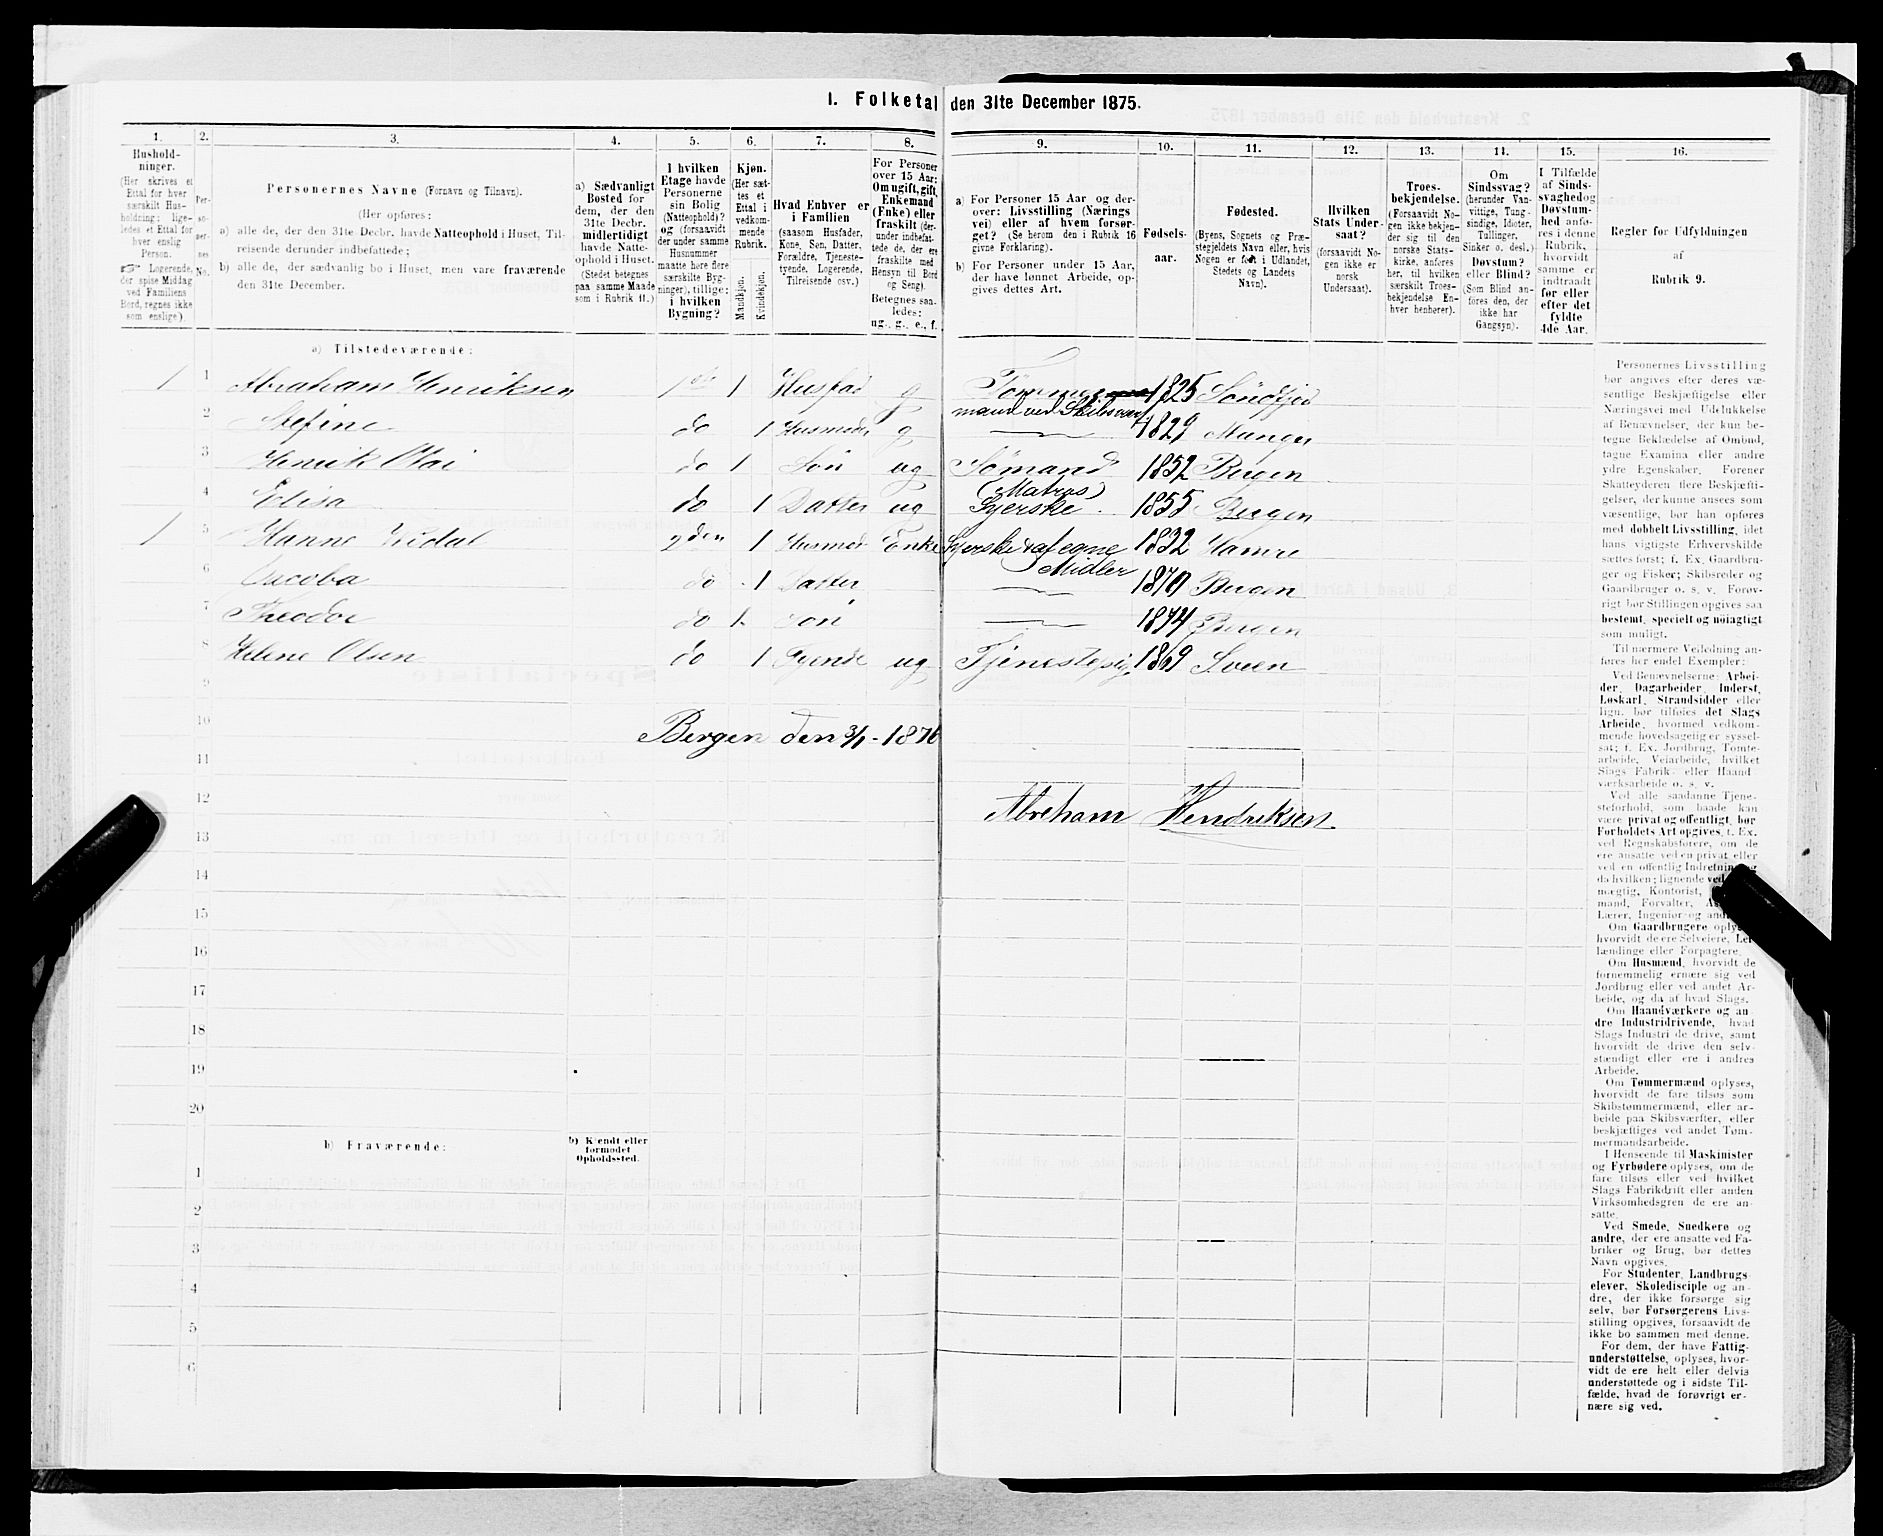 1. Folketal den 31te December 1875.
1.
Hushold-
ninger.
(Her skrives et
Ettal for hver
særskilt Hus-
holdning; lige-
ledes et Ettal for
hver enslig
Person.
☞ Logerende,
der spise Middag
ved Familiens
Bord, regnes ikke
som enslige).
2.
Per-
so-
ner-
nes
No.
3.
Personernes Navne (Fornavn og Tilnavn).
(Her opføres:
a) alle de, der den 31te Decbr. havde Natteophold i Huset, Til-
reisende derunder indbefattede;
b) alle de, der sædvanlig bo i Huset, men vare fraværende
den 31te December.
4.
a) Sædvanligt
Bosted for
dem, der den
31te Decbr.
midlertidigt
havde Natte-
ophold i Huset.
(Stedet betegnes
paa samme Maade
som i Rubrik 11.)
5.
I hvilken
Etage havde
Personerne
sin Bolig
(Natteophold)?
og (forsaavidt
der under samme
Husnummer
maatte høre flere
særskilte Byg-
ninger), tillige:
i hvilken
Bygning?
6.
Kjøn.
(Her sæt-
tes et
Ettal i
vedkom-
mende
Rubrik.
Mandkjøn.
Kvindekjøn.
7.
Hvad Enhver er
i Familien
(saasom Husfader,
Kone, Søn, Datter,
Forældre, Tjeneste-
tyende, Logerende,
Tilreisende osv.)
8.
For Personer
over 15 Aar:
Om ugift, gift,
Enkemand
(Enke) eller
fraskilt (der-
under indbefat-
tede de, der ere
fraskilte med
Hensyn til Bord
og Seng).
Betegnes saa-
ledes:
ug., g., e., f.
9.
a) For Personer 15 Aar og der-
over: Livsstilling (Nærings
vei) eller af hvem forsør-
get? (Se herom den i Rubrik 16
givne Forklaring).
b) For Personer under 15 Aar,
der have lønnet Arbeide, op-
gives dettes Art.
10.
Fødsels-
aar.
11.
Fødested.
(Byens, Sognets og Præ-
stegjeldets Navn eller, hvis
Nogen er født i Udlandet,
Stedets og Landets
Navn).
12.
Hvilken
Stats Under-
saat?
(forsaavidt No-
gen ikke er
norsk
Undersaat).
13.
Troes-
bekjendelse.
(Forsaavidt No-
gen ikke bekjen-
der sig til den
norske Stats-
kirke, anføres
her, til hvilken
særskilt Troes-
bekjendelse En-
hver henhører).
14.
Om
Sindssvag?
(herunder Van-
vittige, Tung-
sindige, Idioter,
Tullinger,
Sinker o. desl.)
Døvstum?
eller Blind?
(Som Blind an-
føres den, der
ikke har
Gangsyn).
15.
I Tilfælde
af Sinds-
svaghed og
Døvstum-
hed anfø-
res i denne
Rubrik,
hvorvidt
samme er
indtraadt
før eller
efter det
fyldte
4de Aar.
16.
Regler for Udfyldningen
af
Rubrik 9.
a) Tilstedeværende:
1 1 Abraham Henriksen 1ste 1 Husfad g Tømmer 1825 Søndfjord
mand ved Skibsværf
2 Stefine do 1 Husmoder g 1829 Manger
3 Henrik Olai do 1 Søn ug Sømand 1852 Bergen
(Matros)
4 Elisa do 1 Datter ug Syerske 1855 Bergen
1 5 Hanne 2den 1 Husmod Enke Syerske af egne 1832 Hamre
Midler
6 Jacoba do 1 Datter 1870 Bergen
7 Theodor do 1 Søn 1874 Bergen
8 Helene Olsen do 1 Tyende ug Tjenestepige 1869 Sveen
9
10
Bergen den 3/1-1876
11
12
Abreham Hendriksen
13
14
15
16
17
18
19
20
b) Fraværende:
b) Kjendt eller
formodet
Opholdssted.
1
2
3
4
5
6
Personernes Livsstilling
bør angives efter deres væ-
sentlige Beskjæftigelse eller
Næringsvei med Udelukkelse
af Benævnelser, der kun be-
tegne Beklædelse af Ombud,
tagne Examina eller andre
ydre Egenskaber. Forener
Skatteyderen flere Beskjæfti-
gelser, der kunne ansees som
væsentlige, bør han opføres
med dobbelt Livsstilling, idet
hans vigtigste Erhvervskilde
sættes først; f. Ex. Gaardbru-
ger og Fisker; Skibsreder og
Gaardbruger o. s. v. Forøv-
rigt bør Stillingen opgives saa
bestemt, specielt og nøiagtigt
som muligt.
Til nærmere Veiledning an-
føres her endel Exempler:
Ved Benævnelserne: Arbei-
der, Dagarbeider, Inderst,
Løskarl, Strandsidder eller
lign. bør tilføies det Slags
Arbeide, hvormed vedkom-
mende hovedsagelig er syssel-
sat; f. Ex. Jordbrug, Tomte-
arbeide, Veiarbeide, hvilket
Slags Fabrik- eller Haand-
værksarbeide o. s. v.
Ved alle saadanne Tjene-
steforhold, som baade kan
være privat og offentligt, bør
Forholdets Art opgives, f. Ex.
ved Regnskabsførere, om de
ere ansatte ved en privat eller
ved en offentlig Indretning og
da hvilken; lignende ved
mægtig, Kontorist,
mand, Forvalter,
Lærer, Ingeniør og
Om Gaardbrugere
hvorvidt de ere Selveiere, Lei-
lændinge eller Forpagtere.
Om Husmænd, hvorvidt de
fornemmelig ernære sig ved
Jordbrug eller ved andet Ar-
beide, og da af hvad Slags.
Om Haandværkere og an-
dre Industridrivende, hvad
Slags Industri de drive, samt
hvorvidt de drive den selv-
stændigt eller ere i andres
Arbeide.
Om Tømmermænd oplyses,
hvorvidt de fare tilsøs som
Skibstømmermænd, eller ar-
beide paa Skibsværfter, eller
beskjæftiges ved andet Tøm-
mermandsarbeide.
I Henseende til Maskinister
og Fyrbødere oplyses, om de
fare tilsøs eller ved hvilket
Slags Fabrikdrift eller anden
Virksomhedsgren de ere an-
satte.
Ved Smede, Snedkere og
andre, der ere ansatte ved Fa-
briker og Brug, bør dettes
Navn opgives.
For Studenter, Landbrugs-
elever, Skoledisciple og an-
dre, der ikke forsørge sig
selv, bør Forsørgerens Livs-
stilling opgives, forsaavidt de
ikke bo sammen med denne.
For dem, der have Fattig-
understøttelse, oplyses, hvor-
vidt de ere helt eller delvis
understøttede og i sidste Til-
fælde, hvad de forøvrigt er-
nære sig ved.